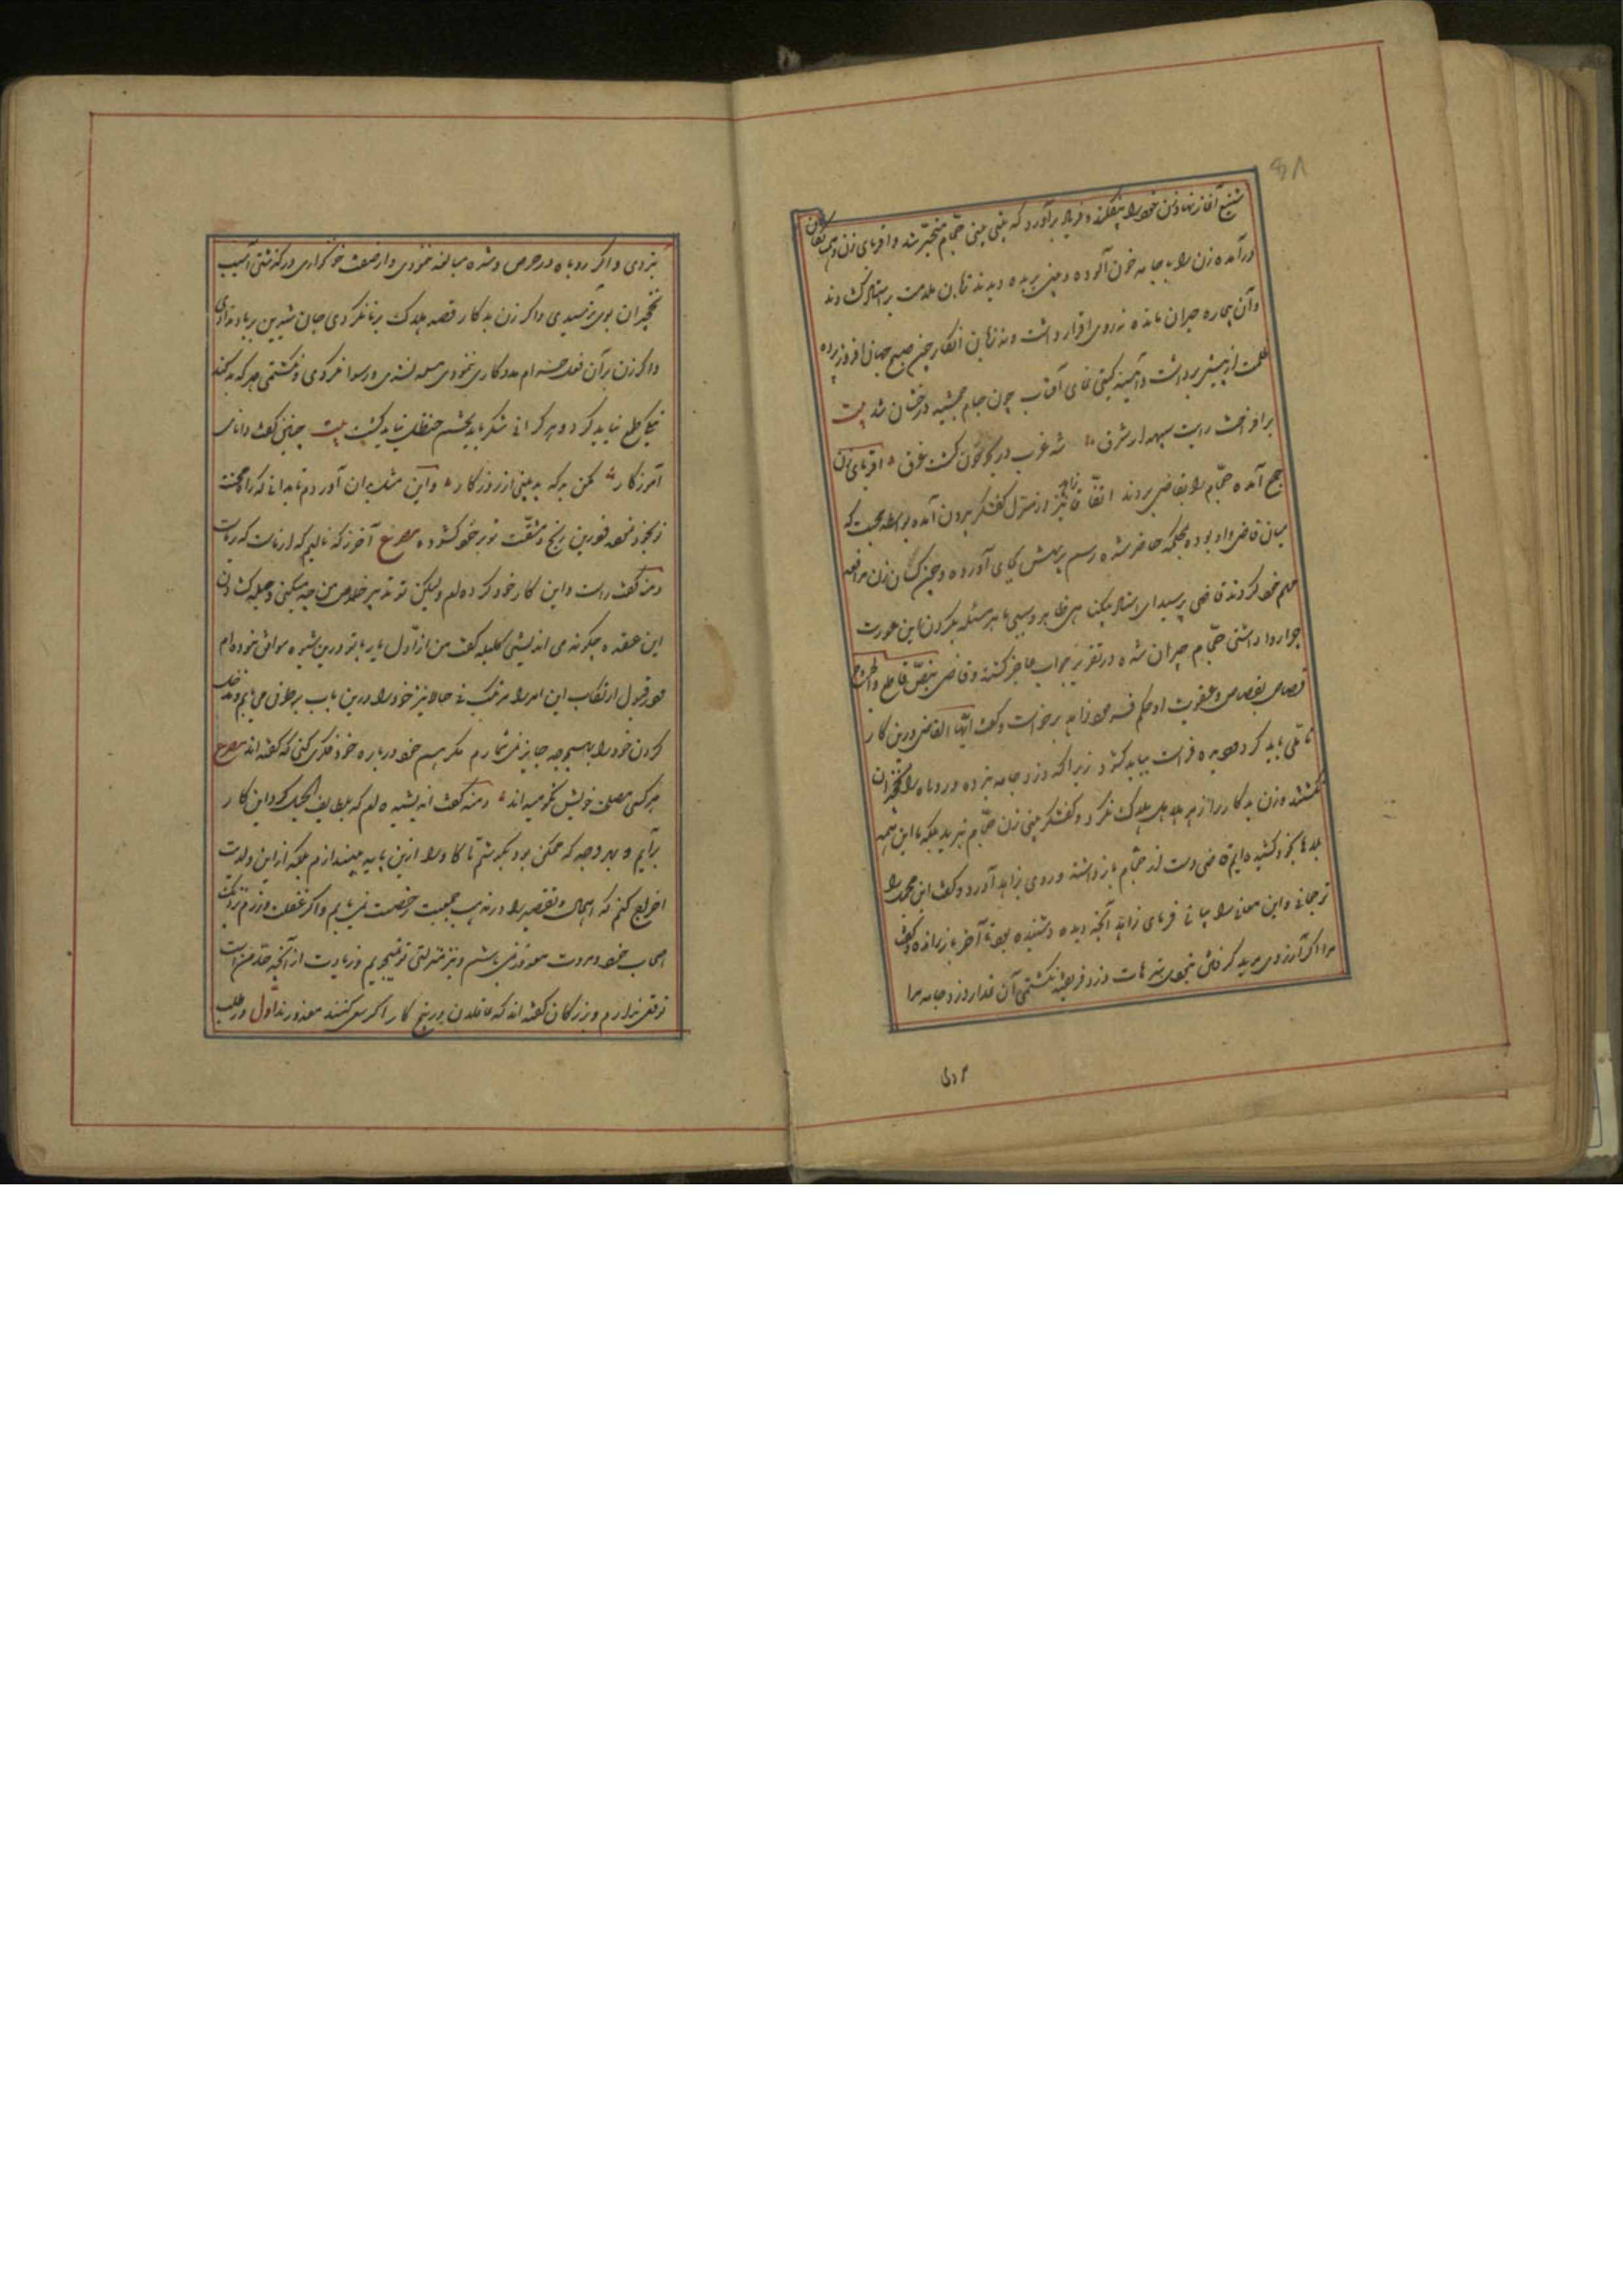 ۴۸
شنیع آغاز نهاد و تن خود را بیفکند و فریاد برآورد که بینی بینی حجّام متحیّر شد و اقربای زن و همسایگان
درآمده زن را با جامه خون آلوده و بینی بریده دیدند زبان ملامت بر استاد کشادند
و آن بیچاره حیران مانده نه روی اقرار داشت و نه زبان انکار چون صبح جهان افروز پرده
ظلمت از پیش برداشت و آیینه گیتی نمای آفتاب چون جام جمشید درخشان شد بیت
برافراخت رایت سپهدار شرق شه غرب در بحر خون گشت غرق اقربای زن
جمع آمده حجّام را بقاضی بردند اتفّاقا زاهد نیز از منزل کفشگر بیرون آمده بواسطه محبت که
میان قاضی و او بود بمحکمه حاضر شده رسم پرسش بجای آورده و چون کسان زن مرافعه
مهم خود کردند قاضی پرسید ای استاد بیگناهی ظاهر و سببی ما هر مثله کردن این عورت
چرا روا داشتی حجّام حیران شده در تقریر جواب عاجز گشت و قاضی بنصّ قاطع والجروح
قصاص بقصاص و عقوبت او حکم فرمود زاهد برخاست و گفت ایّها القاضی درین کار
تاملی باید کرد و دیده فراست بباید کشود زیرا که دزد جامه نبرده و روباه را نخجیران
نکشتند و زن بدکار را زهر هلاهل هلاک نکرد و کفشگر بینی زن حجّام نبرید بلکه ما این همه
بلاها بخود کشیده‌ایم قاضی دست از حجّام بازداشته و روی بزاهد آورد و گفت این مجمل را
ترجمانی و این معانی را بیانی فرمای زاهد آنچه دیده و شنیده بود تا آخر باز راند و گفت
مرا اگر آرزوی مرید گرفتن نبودی بترهات دزد فریفته نگشتمی آن غدار دزد جامه مرا
نبردی و اگر روباه در حرص و شره مبالغه ننمودی و از صفت خونخواری درگذشتی آسیب
نخجیران بوی نرسیدی و اگر زن بدکار قصد هلاک برنا نکردی جان شیرین بر باد ندادی
و اگر زن بر آن فعل حرام مددکاری ننمودی مثله نشدی و رسوا نگردی و نگشتمی هر که بد کند
نیکی طمع نباید کرد و هر که را نی شکر باید تخم حنظل نباید کشت بیت چنین گفت دانای
آموزگار مکن بد که بد بینی از روزگار و این مثل بدان آوردم تا بدانی که راه محنت
تو بخود نموده و درین رنج و مشقّت تو بر خود کشوده مصرع آخر ز که نالیم که از ماست که بر ماست
دمنه گفت راست و این کار خود کرده‌ام ولیکن تو تدبیر خلاص من چه میکنی و حیله کشادن
این عقده چگونه می اندیشی کلیله گفت من از اوّل با تو درین شیوه موافق نبوده‌ام
و در قبول ارتکاب این امر را مرتکب نی حالا نیز خود را درین باب بر طرف می یابم و مدخل
کردن خود را بهیچوجه جایز نمی‌شمارم مگر هم خود درباره خود فکری کنی که گفته اند مصرع
هر کسی مصلحت خویش نکو میداند دمنه گفت اندیشیده‌ام که بلطایف الحیل گرد این کار
برآیم و بهر وجه که ممکن بود بکوشم تا گاو را ازین پایه بیندازم بلکه ازین ولایت
اخراج کنم که اهمال و تقصیر را در مذهب حمیت رخصت نمی‌یابم و اگر غفلت ورزم نزدیک
اصحاب خرد و مروت معذور نمی باشم و نیز منزلتی نو نمیجویم و زیادت از آنچه حدّ من است
توقع ندارم و بزرگان گفته اند که عاقلان در پنج کار اگر سعی کنند معذورند اول در طلب